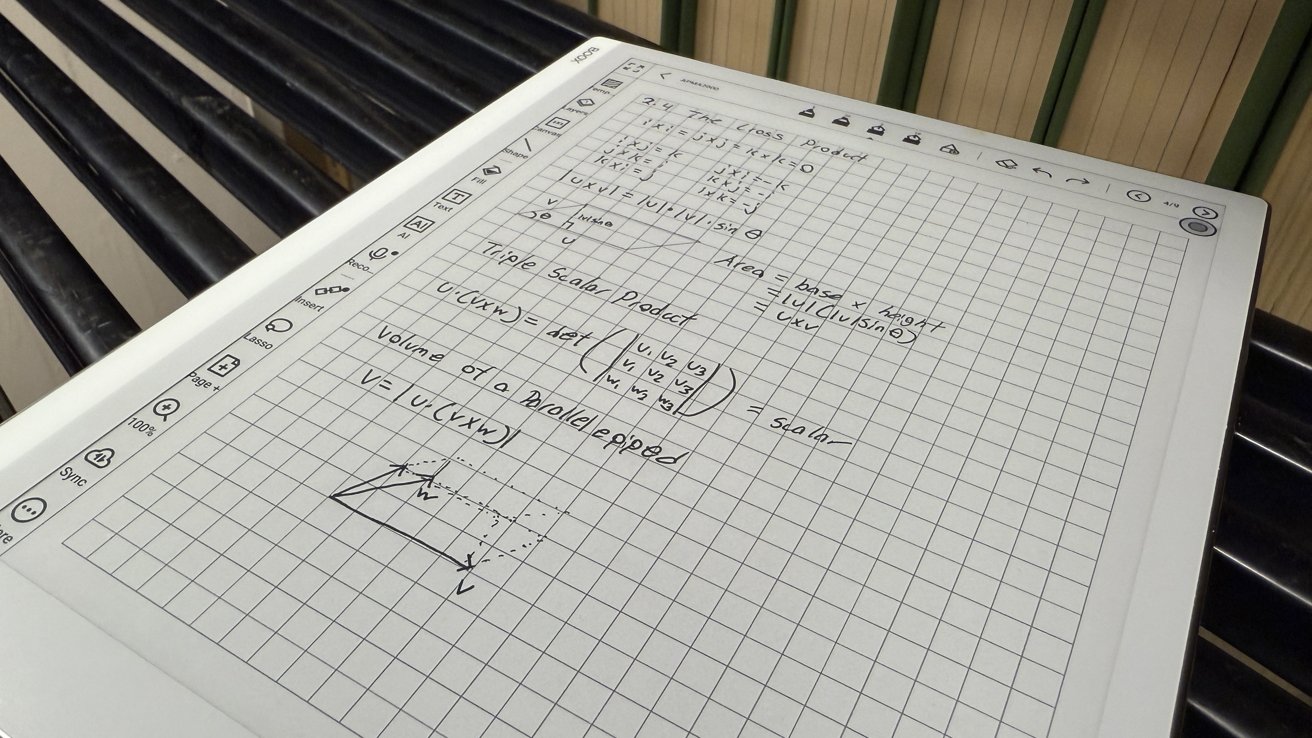 BOOX
APMA2000
4/9
Layers
Canvas
Shape
Fill
Text
AI
Reco...
Insert
Lasso
Page +
100%
Sync
2.4 The Cross Product
i×i = j×j = k×k = 0
i×j = k
j×k = i
k×i = j
j×i = -k
k×j = -i
i×k = -j
|u×v| = |u|·|v|·sin θ
v
θ
|v|sinθ
u
Area = base × height
= |u|(|v|sinθ)
= u×v
Triple Scalar Product
u·(v×w) = det (|u₁ u₂ u₃|) = scalar
v₁ v₂ v₃
w₁ w₂ w₃
Volume of a Parallelepiped
V = |u·(v×w)|
w
v